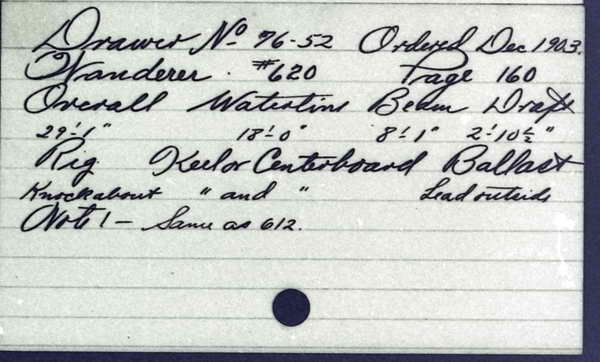 Drawer No 76-52 Ordered Dec 1903.
Wanderer. #620 Page 160
Overall Waterline Beam Draft
29'-1" 18'-0" 8'-1" 2'-10½"
Rig Keel or Centerboard Ballast
Knockabout " and " Lead outside
Note 1 - Same as 612.